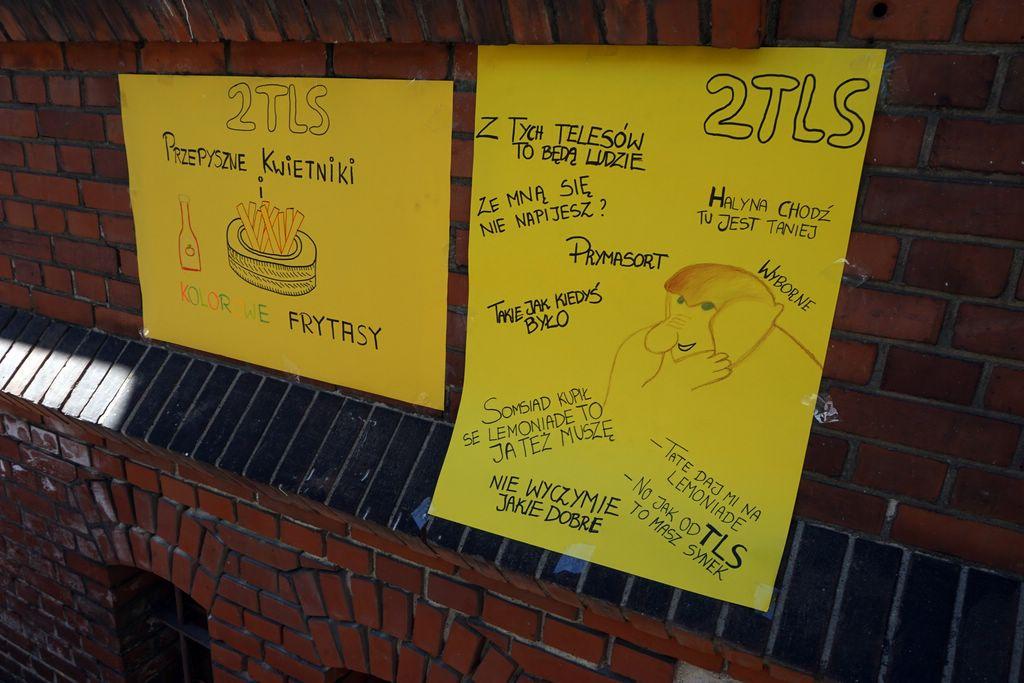 2TLS
PRZEPYSZNE KWIETNIKI
i
KOLOROWE FRYTASY
2TLS
Z TYCH TELESÓW
TO BĘDĄ LUDZIE
ZE MNĄ SIĘ
NIE NAPIJESZ?
HALYNA CHODŹ
TU JEST TANIEJ
PRYMASORT
WYBORNE
TAKIE JAK KIEDYŚ
BYŁO
SOMSIAD KUPIŁ
SE LEMONIADE TO
JA TEŻ MUSZĘ
NIE WYCZYMIE
JAKIE DOBRE
- TATE DAJ MI NA
LEMONIADE
- NO JAK OD TLS
TO MASZ SYNEK